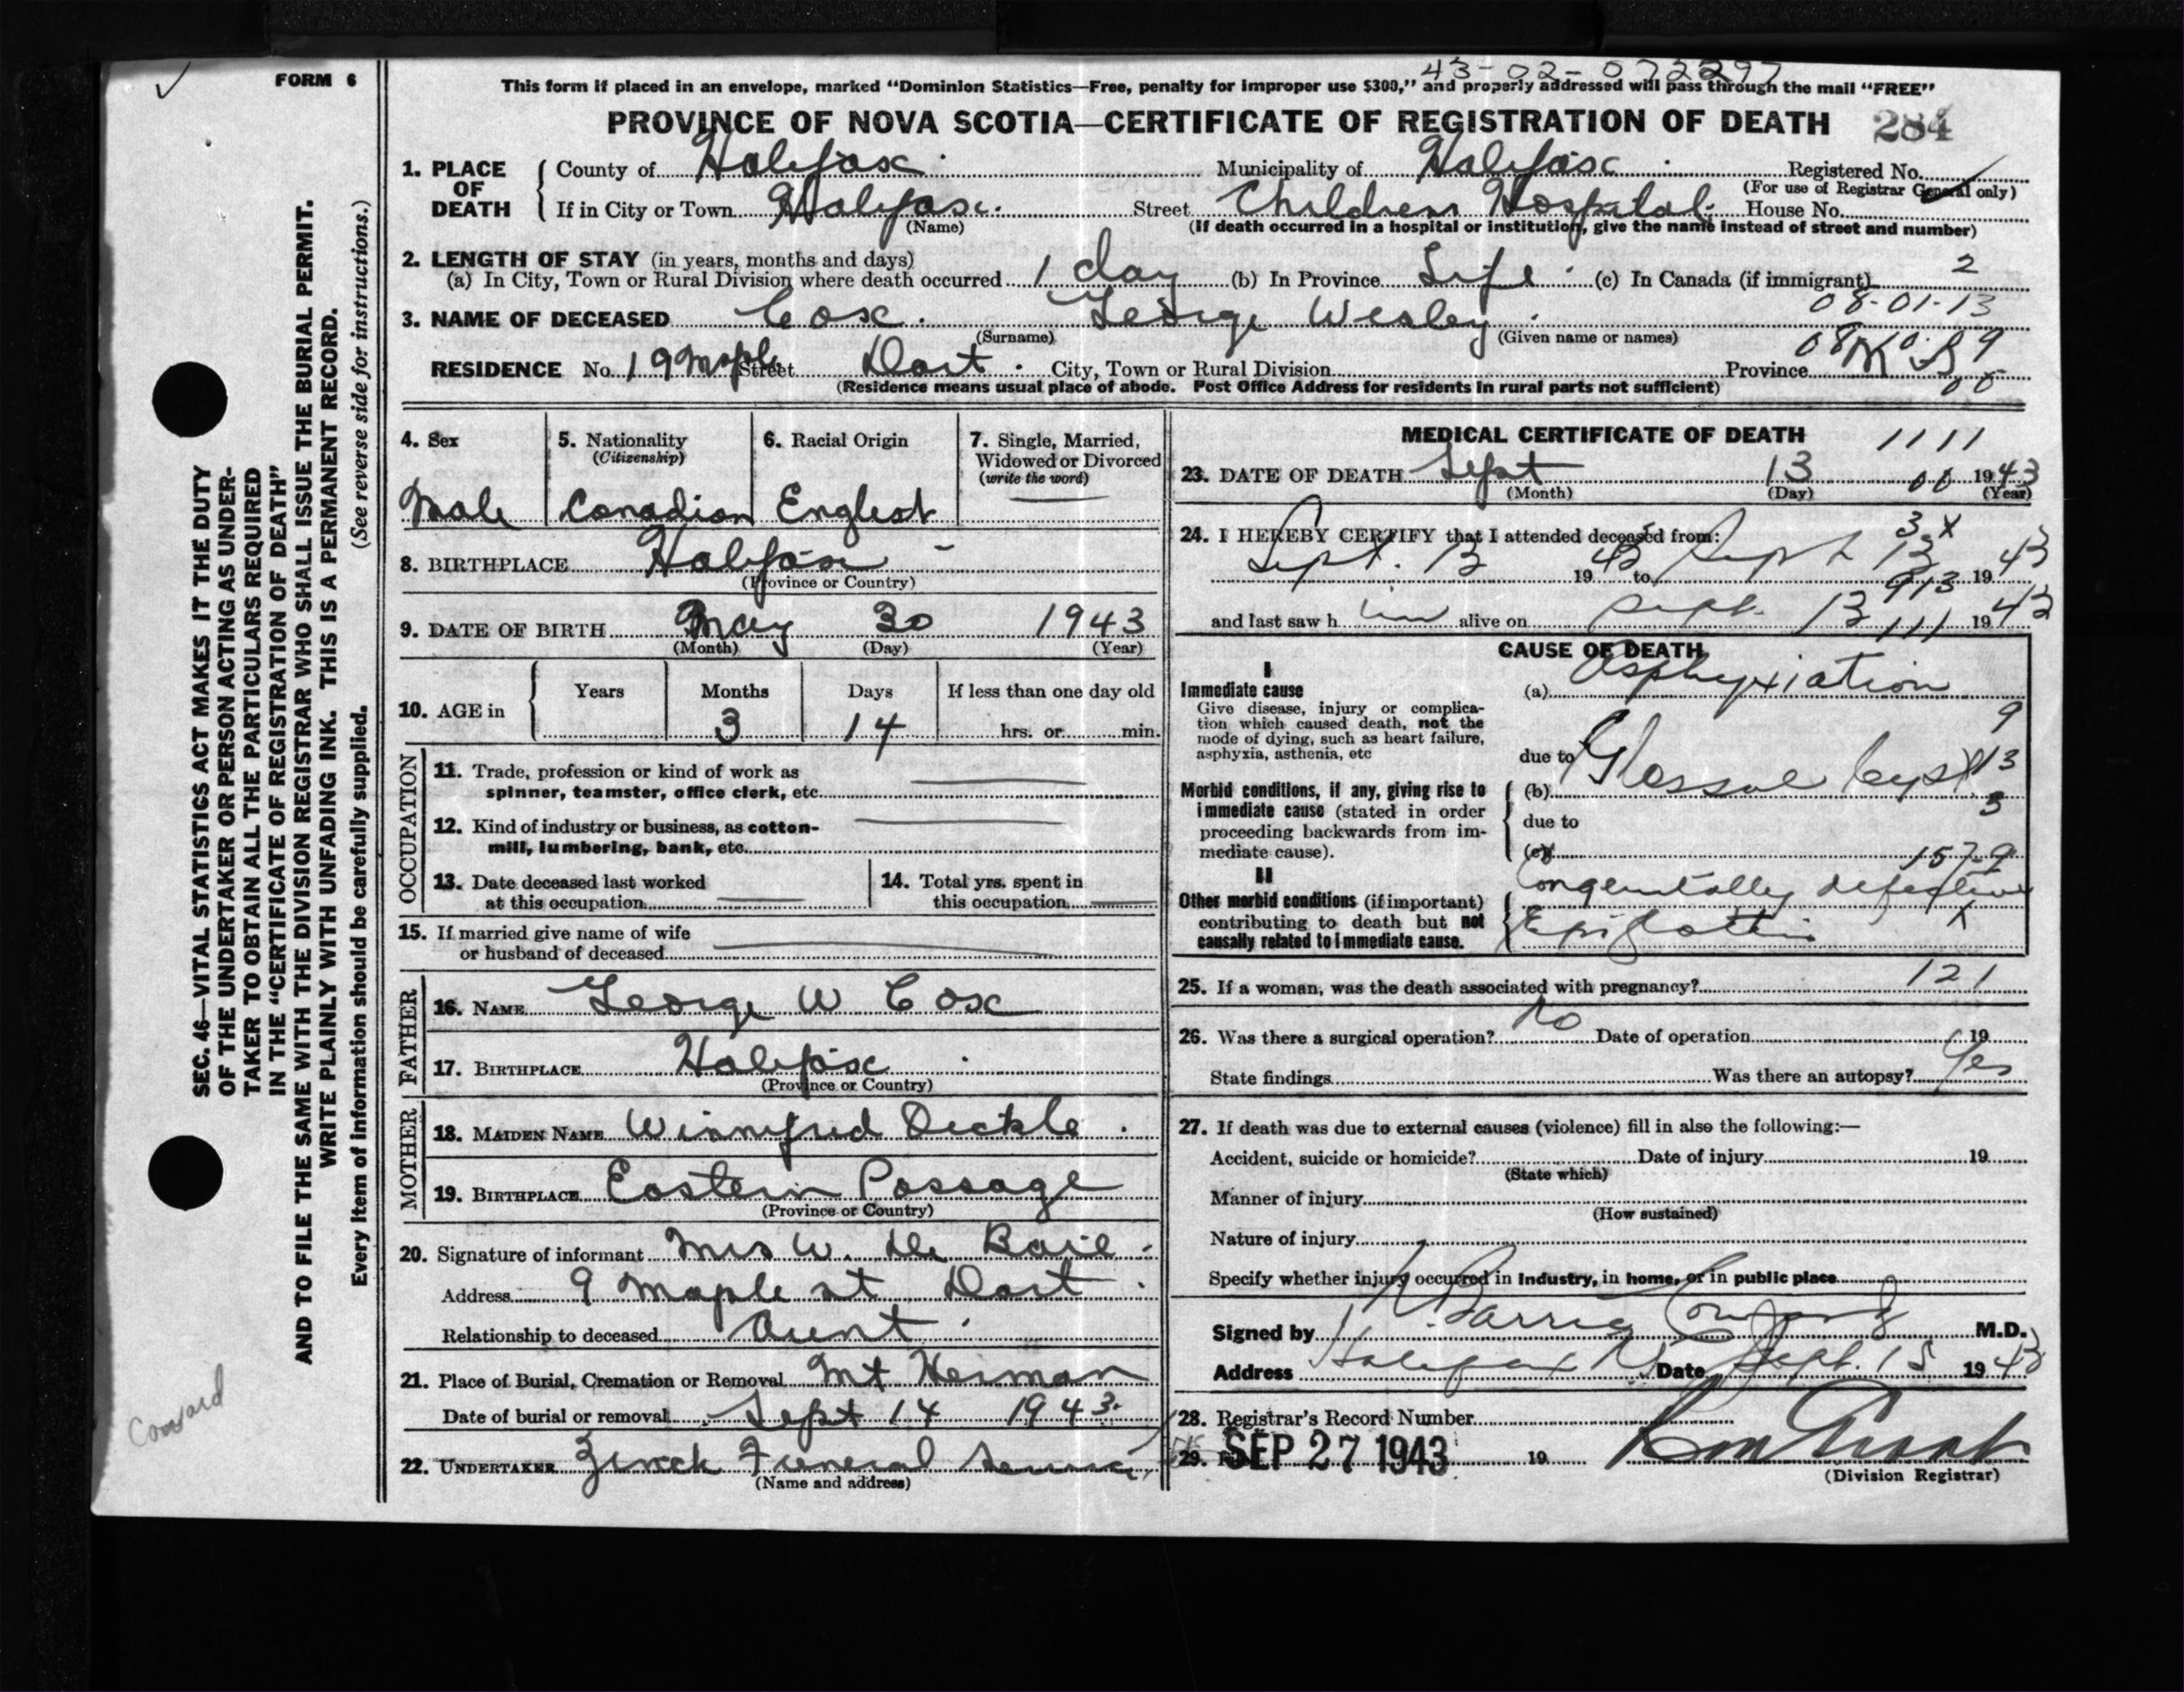 FORM 6
43-02-072297
This form if placed in an envelope, marked "Dominion Statistics—Free, penalty for improper use $300," and properly addressed will pass through the mail "FREE"
PROVINCE OF NOVA SCOTIA—CERTIFICATE OF REGISTRATION OF DEATH 284
1. PLACE OF DEATH County of Halifax Municipality of Halifax Registered No.
(For use of Registrar General only)
If in City or Town Halifax. Street Childrens Hospital. House No.
(Name) (If death occurred in a hospital or institution, give the name instead of street and number)
2. LENGTH OF STAY (in years, months and days)
(a) In City, Town or Rural Division where death occurred 1 day (b) In Province Life (c) In Canada (if immigrant) 2
08-01-13
3. NAME OF DECEASED Cox. George Wesley
(Surname) (Given name or names)
RESIDENCE No. 19 Maple Street Dart. City, Town or Rural Division Province N.S.
(Residence means usual place of abode. Post Office Address for residents in rural parts not sufficient)
SEC. 46—VITAL STATISTICS ACT MAKES IT THE DUTY
OF THE UNDERTAKER OR PERSON ACTING AS UNDER-
TAKER TO OBTAIN ALL THE PARTICULARS REQUIRED
IN THE "CERTIFICATE OF REGISTRATION OF DEATH"
AND TO FILE THE SAME WITH THE DIVISION REGISTRAR WHO SHALL ISSUE THE BURIAL PERMIT.
WRITE PLAINLY WITH UNFADING INK. THIS IS A PERMANENT RECORD.
Every item of information should be carefully supplied. (See reverse side for instructions.)
4. Sex 5. Nationality 6. Racial Origin 7. Single, Married,
(Citizenship) Widowed or Divorced
(write the word)
Male Canadian English
8. BIRTHPLACE Halifax
(Province or Country)
9. DATE OF BIRTH May 30 1943
(Month) (Day) (Year)
10. AGE in Years Months Days If less than one day old
3 14 hrs. or min.
OCCUPATION
11. Trade, profession or kind of work as
spinner, teamster, office clerk, etc.
12. Kind of industry or business, as cotton-
mill, lumbering, bank, etc.
13. Date deceased last worked 14. Total yrs. spent in
at this occupation this occupation
15. If married give name of wife
or husband of deceased
FATHER
16. NAME George W Cox
17. BIRTHPLACE Halifax
(Province or Country)
MOTHER
18. MAIDEN NAME Winnifred
19. BIRTHPLACE Eastern Passage
(Province or Country)
20. Signature of informant Mrs W.
Address 9 Maple st Dart
Relationship to deceased Aunt
21. Place of Burial, Cremation or Removal Mt Herman
Date of burial or removal Sept 14 1943.
22. UNDERTAKER Zinck Funeral Service
(Name and address)
MEDICAL CERTIFICATE OF DEATH 1111
23. DATE OF DEATH Sept 13 1943
(Month) (Day) (Year)
24. I HEREBY CERTIFY that I attended deceased from:
Sept. 13 1943 to Sept 13 1943
and last saw him alive on Sept. 13 1943
CAUSE OF DEATH
I
Immediate cause (a) Asphyxiation
Give disease, injury or complica-
tion which caused death, not the
mode of dying, such as heart failure,
asphyxia, asthenia, etc due to
Morbid conditions, if any, giving rise to (b) Cyst
immediate cause (stated in order
proceeding backwards from im- due to
mediate cause). (c)
157-9
II
Other morbid conditions (if important) Congenitally defective
contributing to death but not Epiglottis
causally related to immediate cause.
25. If a woman, was the death associated with pregnancy? 121
26. Was there a surgical operation? No Date of operation 19
State findings Was there an autopsy? Yes
27. If death was due to external causes (violence) fill in also the following:—
Accident, suicide or homicide? Date of injury 19
(State which)
Manner of injury
(How sustained)
Nature of injury
Specify whether injury occurred in industry, in home, or in public place
Signed by N. Barrie Coward M.D.
Address Halifax NS Date Sept. 15 1943
28. Registrar's Record Number
29. SEP 27 1943 19
(Division Registrar)
Coward